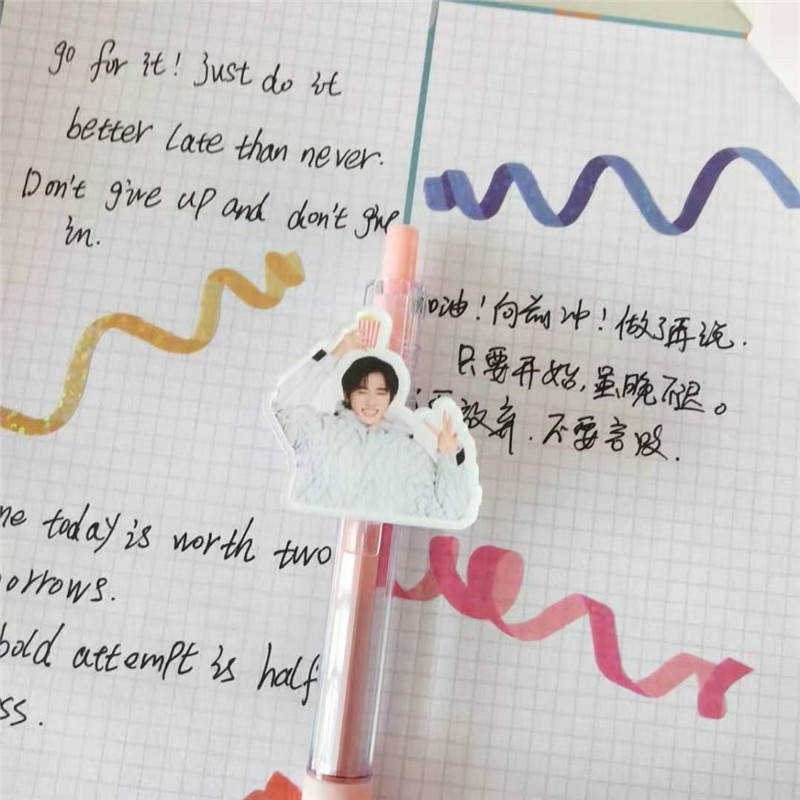 go for it! Just do it
better late than never.
Don't give up and don't give
in.
油!向前冲!做了再说.
只要开始,虽晚不迟。
放弃.不要言败.
today is worth two
bold attempt is half